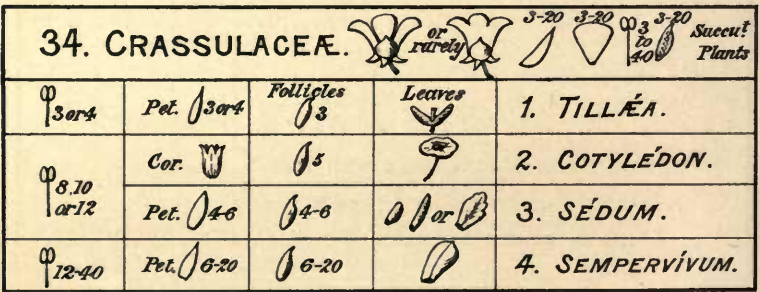 34. CRASSULACEÆ. or rarely 3-20 3-20 3 to 40 3-20 Succut Plants
3or4 Pet. 3or4 Follicles 3 Leaves 1. TILLǼA.
8,10 or12 Cor. 5 2. COTYLÉDON.
Pet. 4-6 4-6 or 3. SÉDUM.
12-40 Pet. 6-20 6-20 4. SEMPERVÍVUM.